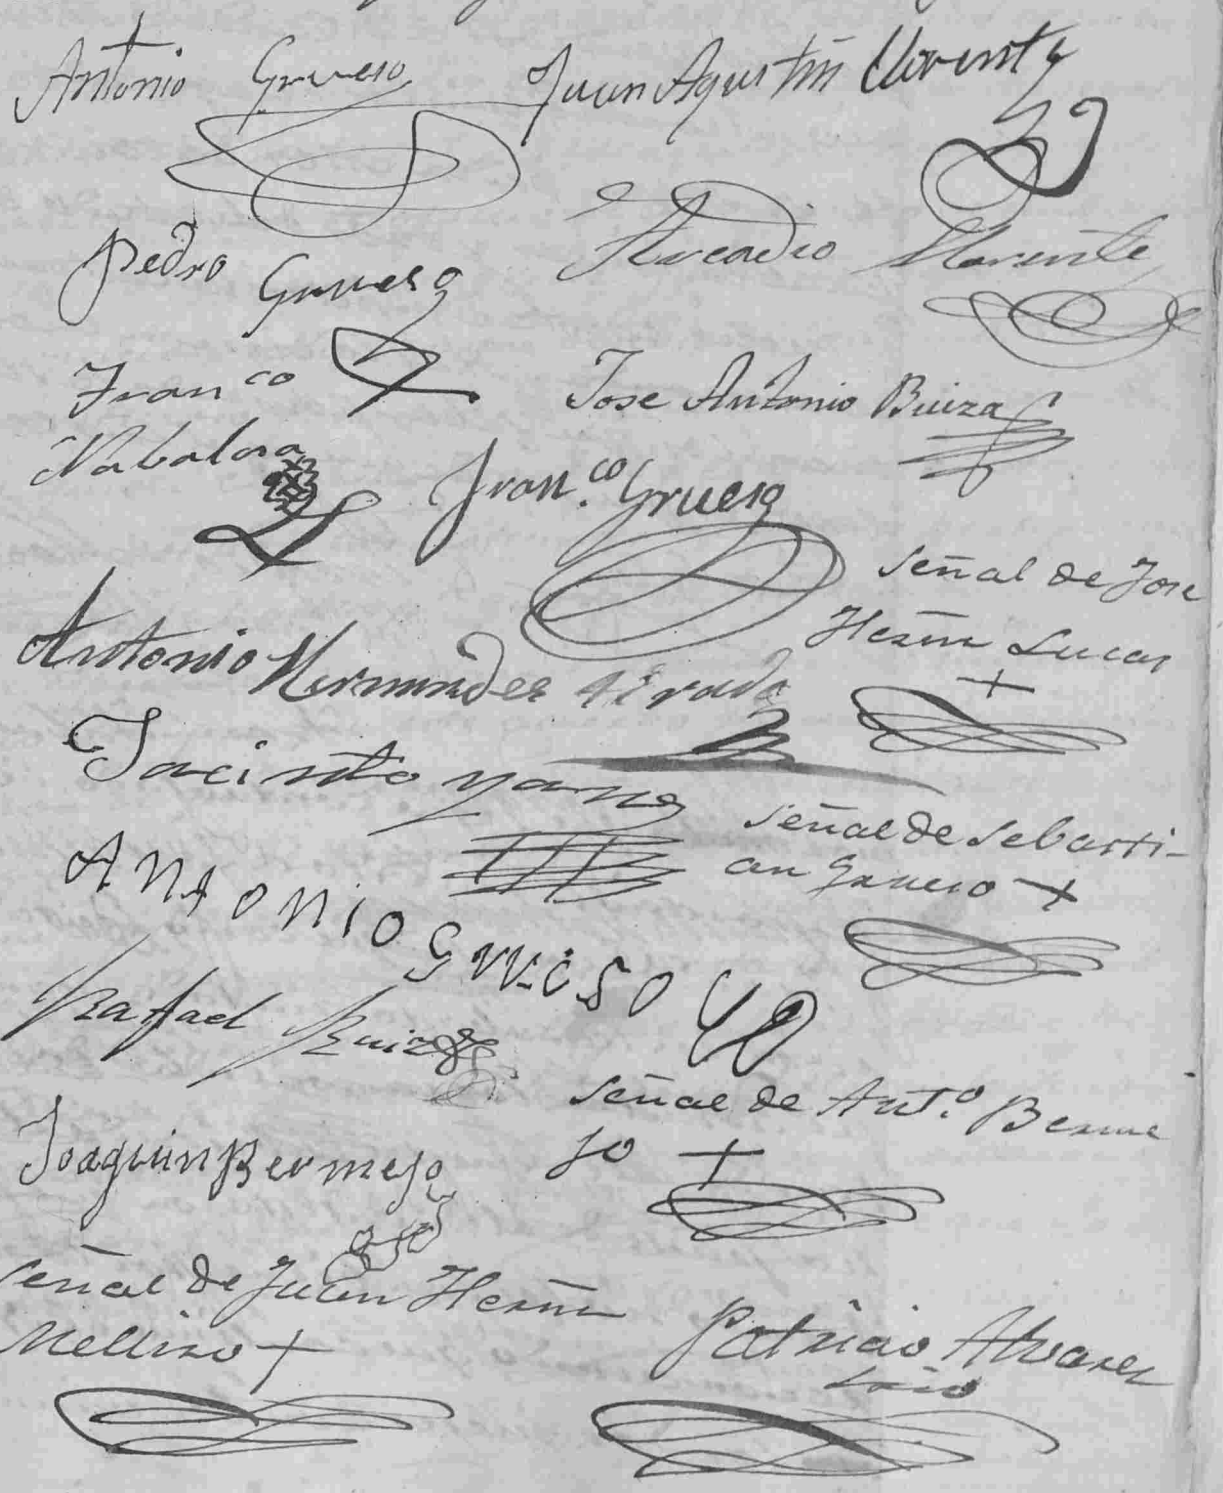 Antonio Grueso
Juan Agustin Llorente
Pedro Grueso
Arcadio Llorente
Fran co
Nabalosa
Jose Antonio Buiza
Fran.co Grueso
señal de Jose
Hern̄n Lucas
+
Antonio Hernandes Tirado
Jacinto
señal de Sebasti-
an Grueso +
Antonio Grueso
Rafael Ruiz
señal de Ant.o Berme
jo +
Joaquin Bermejo
señal de Juan Hern̄n
Mellizo +
Patricio Alvarez